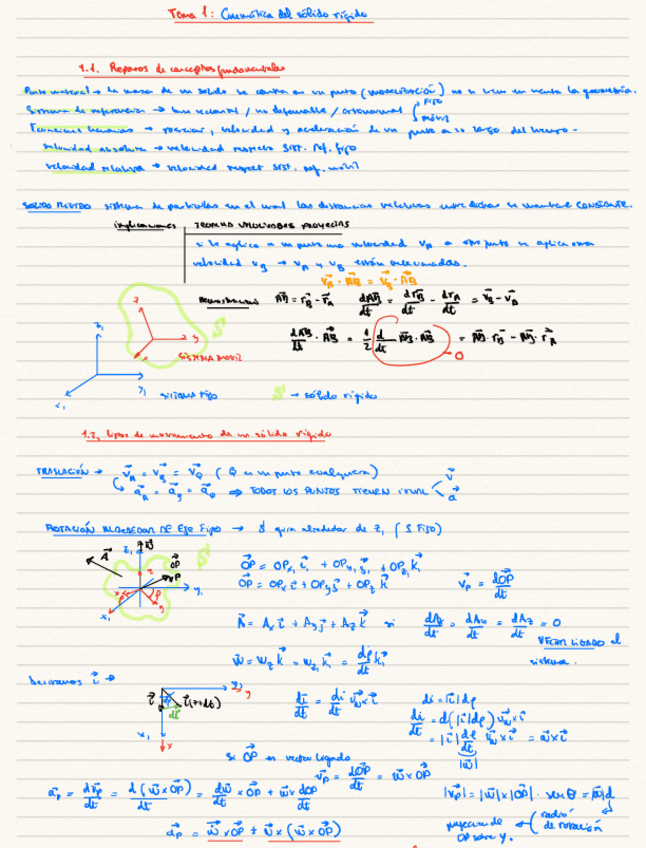 Tema 1: Cinemática del sólido rígido
1.1. Repasos de conceptos fundamentales
Punto material → la masa de un sólido se centra en un punto (MODELIZACIÓN) no se tiene en cuenta la geometría.
Sistema de referencia → base vectorial / no deformable / ortonormal { FIJO
MÓVIL
→ posición, velocidad y aceleración de un punto a lo largo del tiempo -
velocidad absoluta → velocidad respecto sist. ref. fijo
velocidad relativa → velocidad respect sist. ref. móvil
SÓLIDO RÍGIDO sistema de partículas en el cual las distancias relativas entre dichas se mantiene CONSTANTE.
implicaciones TEOREMA VELOCIDADES PROYECTADAS
si le aplica a un punto una velocidad v_A a otro punto se aplica otra
velocidad v_B → v_A y v_B están relacionadas.
v_A · AB = v_B · AB
DEMOSTRACIÓN AB = r_B - r_A dAB/dt = dr_B/dt - dr_A/dt = v_B - v_A
dAB/dt · AB = 1/2 d/dt AB · AB = AB · r_B - AB · r_A
→ 0
z
z₁
y
S
x SISTEMA MÓVIL
y₁
x₁ SISTEMA FIJO
S → sólido rígido
1.2. tipos de movimiento de un sólido rígido
TRASLACIÓN → v_A = v_B = v_Q ( Q es un punto cualquiera) v
a_A = a_B = a_Q ⇒ TODOS LOS PUNTOS TIENEN IGUAL < a
ROTACIÓN ALREDEDOR DE EJE FIJO → S gira alrededor de z₁ ( S. FIJO)
OP = OPx₁ i₁ + OPy₁ j₁ + OPz₁ k₁
OP = OPx i + OPy j + OPz k v_P = dOP/dt
A = Ax i + Ay j + Az k si dAx/dt = dAy/dt = dAz/dt = 0
VECTOR LIGADO al
sistema.
w = wz k = wz₁ k₁ = dφ/dt k₁
Derivamos i →
di/dt = di/dt v_N × i di = |i| dφ
di/dt = d(|i| dφ) v_N × i
= |i| dφ/dt v_N × i = w × i
|w|
i(t+dt)
di
x₁
x
Si OP es vector ligado
v_P = dOP/dt = w × OP
a_P = dv_P/dt = d(w × OP)/dt = dw/dt × OP + w × dOP/dt
|v_P| = |w| × |OP| · sen θ = |w| d
a_P = w × OP + w × (w × OP)
proyección de
OP sobre y.
radio
de rotación